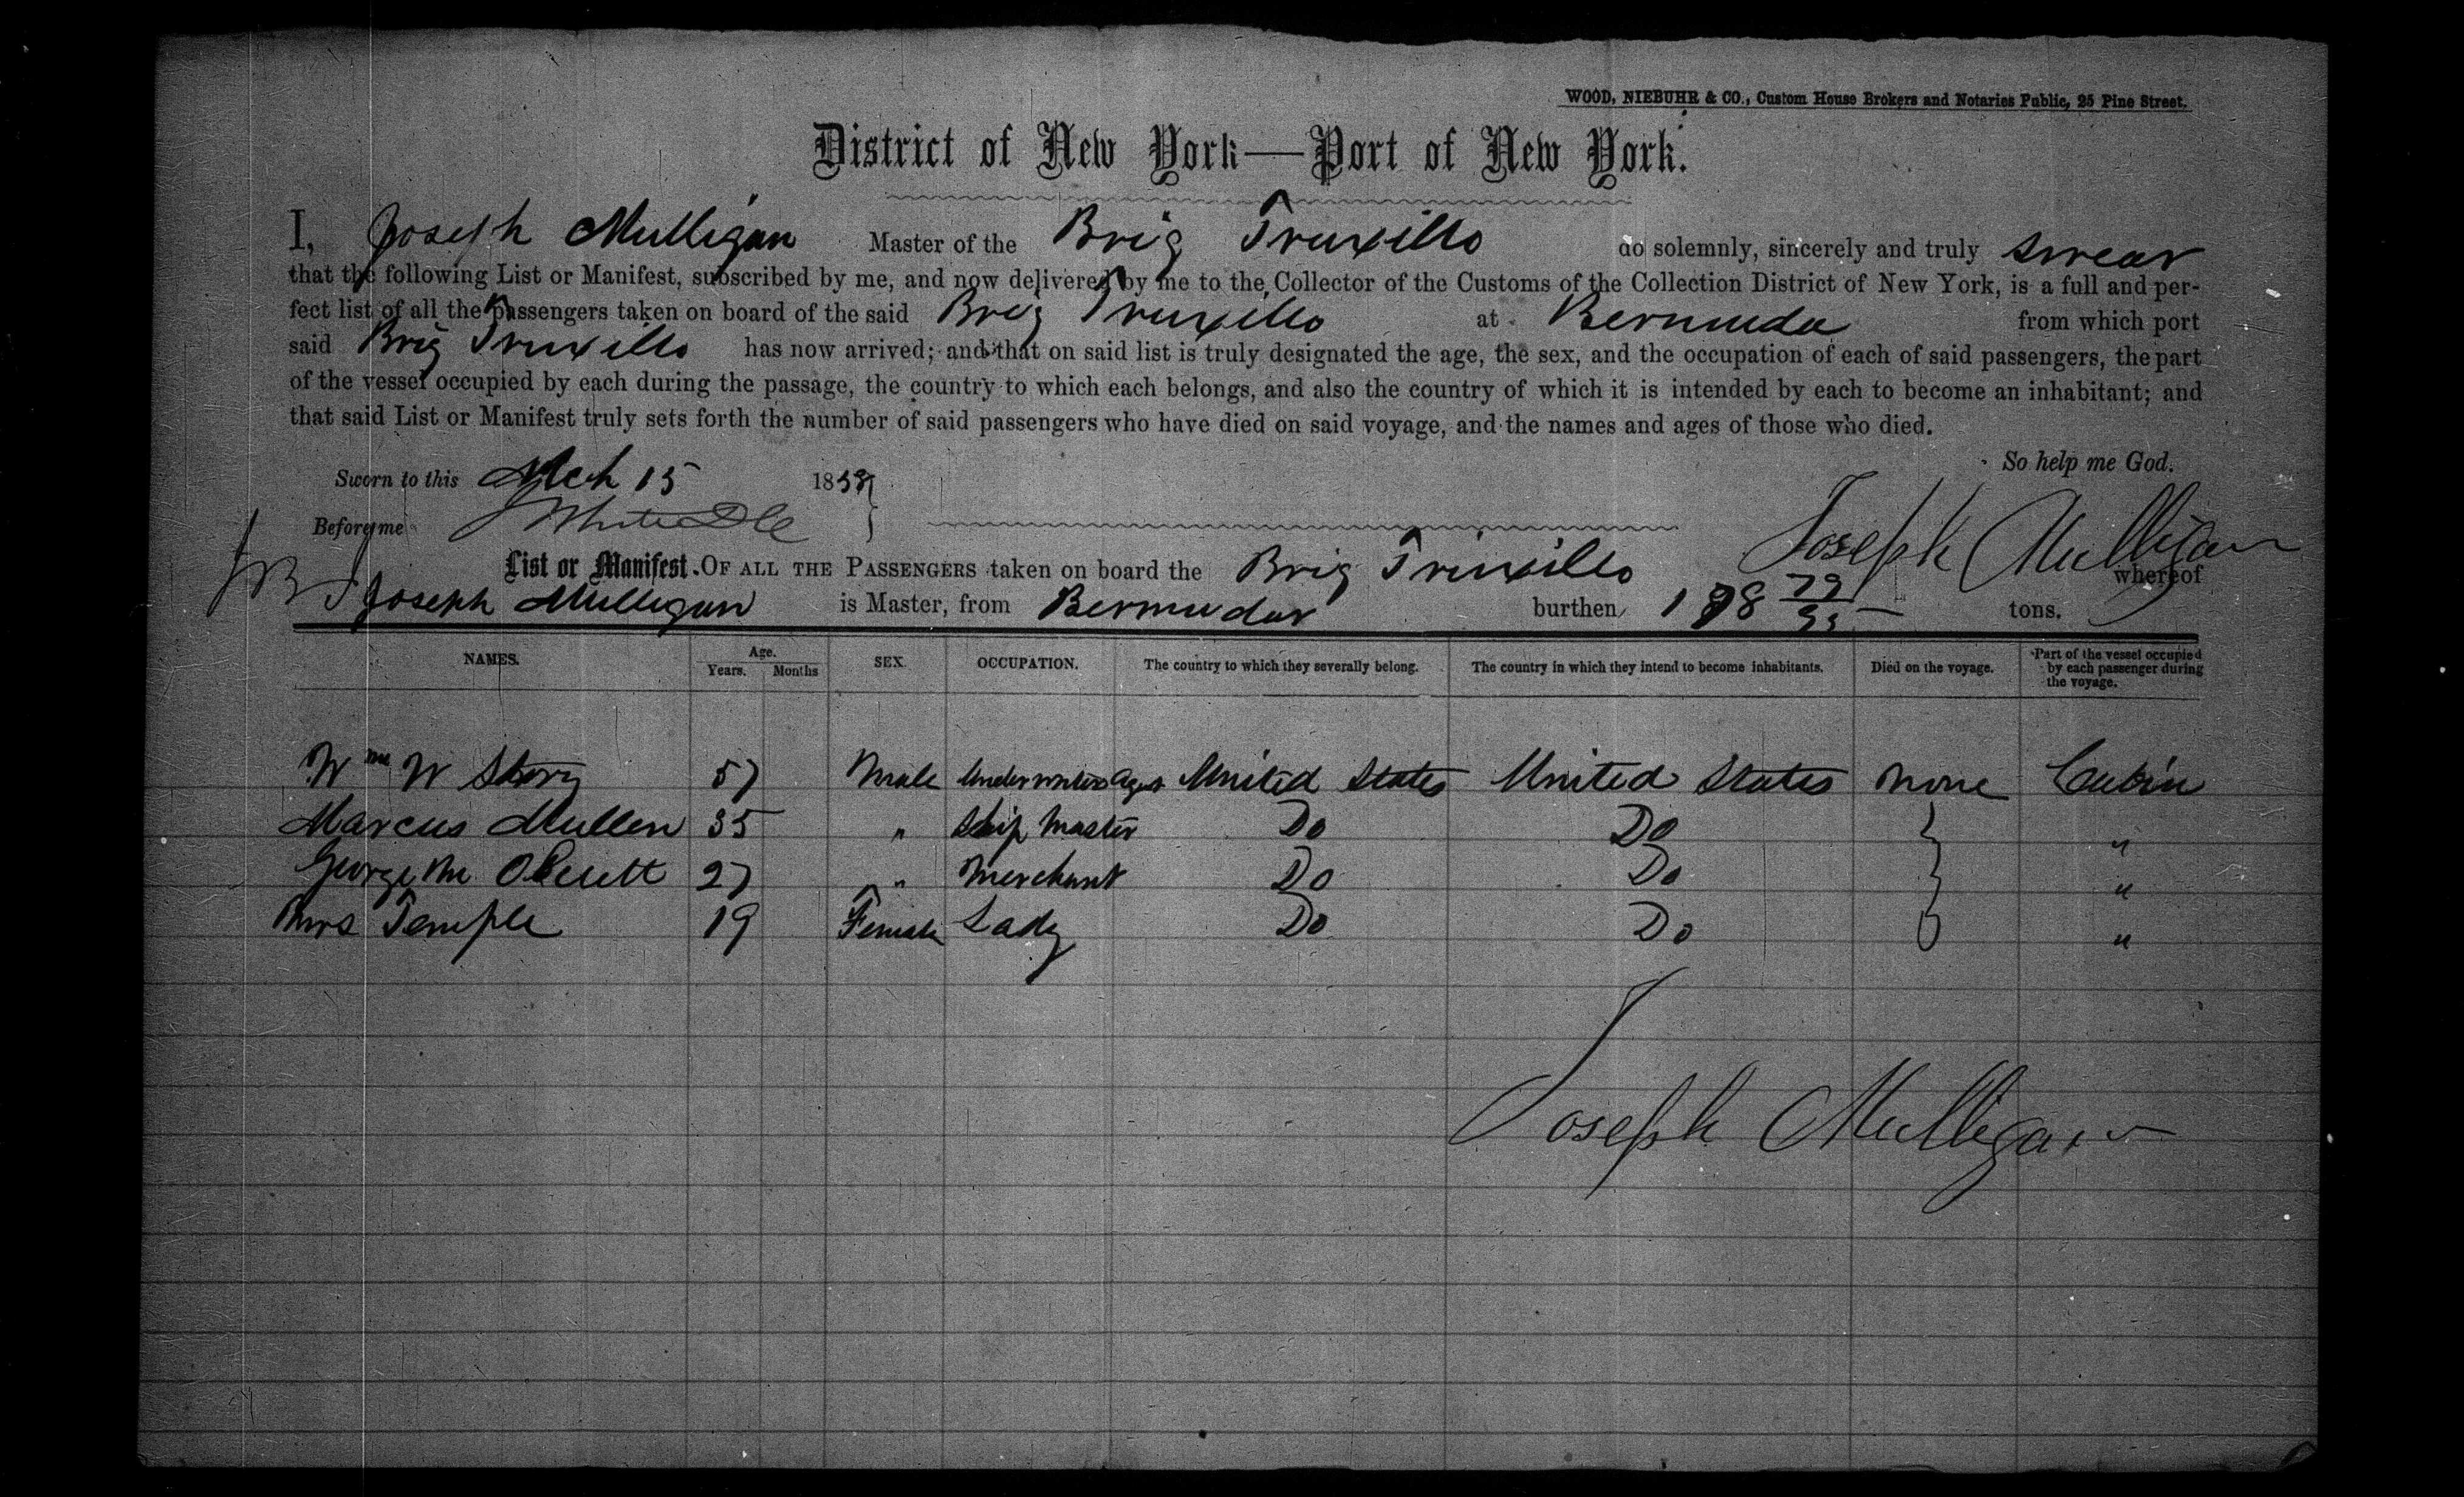 WOOD, NIEBUHR & CO., Custom House Brokers and Notaries Public, 25 Pine Street.
District of New York—Port of New York.
I, Joseph Mulligan Master of the Brig Truxillo do solemnly, sincerely and truly swear
that the following List or Manifest, subscribed by me, and now delivered by me to the Collector of the Customs of the Collection District of New York, is a full and per-
fect list of all the passengers taken on board of the said Brig Truxillo at Bermuda from which port
said Brig Truxillo has now arrived; and that on said list is truly designated the age, the sex, and the occupation of each of said passengers, the part
of the vessel occupied by each during the passage, the country to which each belongs, and also the country of which it is intended by each to become an inhabitant; and
that said List or Manifest truly sets forth the number of said passengers who have died on said voyage, and the names and ages of those who died.
So help me God.
Sworn to this Mch 15 185
Before me
Joseph Mulligan
List or Manifest. OF ALL THE PASSENGERS taken on board the Brig Truxillo whereof
Joseph Mulligan is Master, from Bermudas burthen tons.
NAMES. Age. Years. Months SEX. OCCUPATION. The country to which they severally belong. The country in which they intend to become inhabitants. Died on the voyage. Part of the vessel occupied by each passenger during the voyage.
Wm W Story 57 Male Underwriters Agent United States United States None Cabin
Marcus Mullen 35 " Ship Master Do Do "
George M. 27 " Merchant Do Do "
Mrs Temple 19 Female Lady Do Do "
Joseph Mulligan